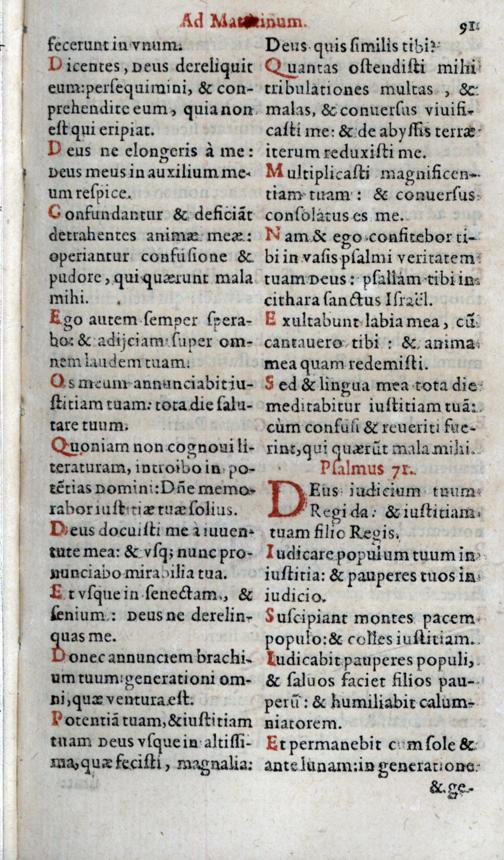 Ad Matutinum.
91.
fecerunt in vnum.
Dicentes, Deus dereliquit
eum: persequimini, & con-
prehendite eum, quia non
est qui eripiat.
Deus ne elongeris à me:
Deus meus in auxilium me-
um respice.
Confundantur & deficiãt
detrahentes animæ meæ:
operiantur confusione &
pudore, qui quærunt mala
mihi.
Ego autem semper spera-
bo: & adijciam super om-
nem laudem tuam.
Os meum annunciabit iu-
stitiam tuam: tota die salu-
tare tuum.
Quoniam non cognoui li-
teraturam, introibo in po-
tẽtias Domini: Dñe memo-
rabor iustitiæ tuæ solius.
Deus docuisti me à iuuen-
tute mea: & vsq; nunc pro-
nunciabo mirabilia tua.
Et vsque in senectam, &
senium: Deus ne derelin-
quas me.
Donec annunciem brachi-
um tuum: generationi om-
ni, quæ ventura est.
Potentiã tuam, & iustitiam
tuam Deus vsque in altissi-
ma, quæ fecisti, magnalia:
Deus quis similis tibi?
Quantas ostendisti mihi
tribulationes multas, &
malas, & conuersus viuifi-
casti me: & de abyssis terræ
iterum reduxisti me.
Multiplicasti magnificen-
tiam tuam: & conuersus
consolatus es me.
Nam & ego confitebor ti-
bi in vasis psalmi veritatem
tuam Deus: psallam tibi in
cithara sanctus Israël.
Exultabunt labia mea, cũ
cantauero tibi: & anima
mea quam redemisti.
Sed & lingua mea tota die
meditabitur iustitiam tuã:
cùm confusi & reueriti fue-
rint, qui quærũt mala mihi.
Psalmus 71.
DEus iudicium tuum
Regi da: & iustitiam
tuam filio Regis.
Iudicare populum tuum in
iustitia: & pauperes tuos in
iudicio.
Suscipiant montes pacem
populo: & colles iustitiam.
Iudicabit pauperes populi,
& saluos faciet filios pau-
perũ: & humiliabit calum-
niatorem.
Et permanebit cum sole &
ante lunam: in generatione
& ge-